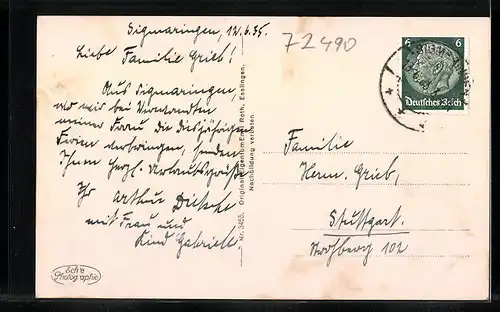 Sigmaringen, 12.6.35.
72490
Liebe Familie Grieb!
Aus Sigmaringen,
wo wir bei Verwandten
meiner Frau die diesjährigen
Ferien verbringen, senden
Ihnen herzl. Urlaubsgrüße
Ihr Arthur
mit Frau und
Kind Gabriele
Echte
Photographie
Nr. 3455. Original-Eigentum Emil Roth, Esslingen.
Nachbildung verboten.
6 6
Deutsches Reich
Familie
Herm. Grieb,
Stuttgart.
102